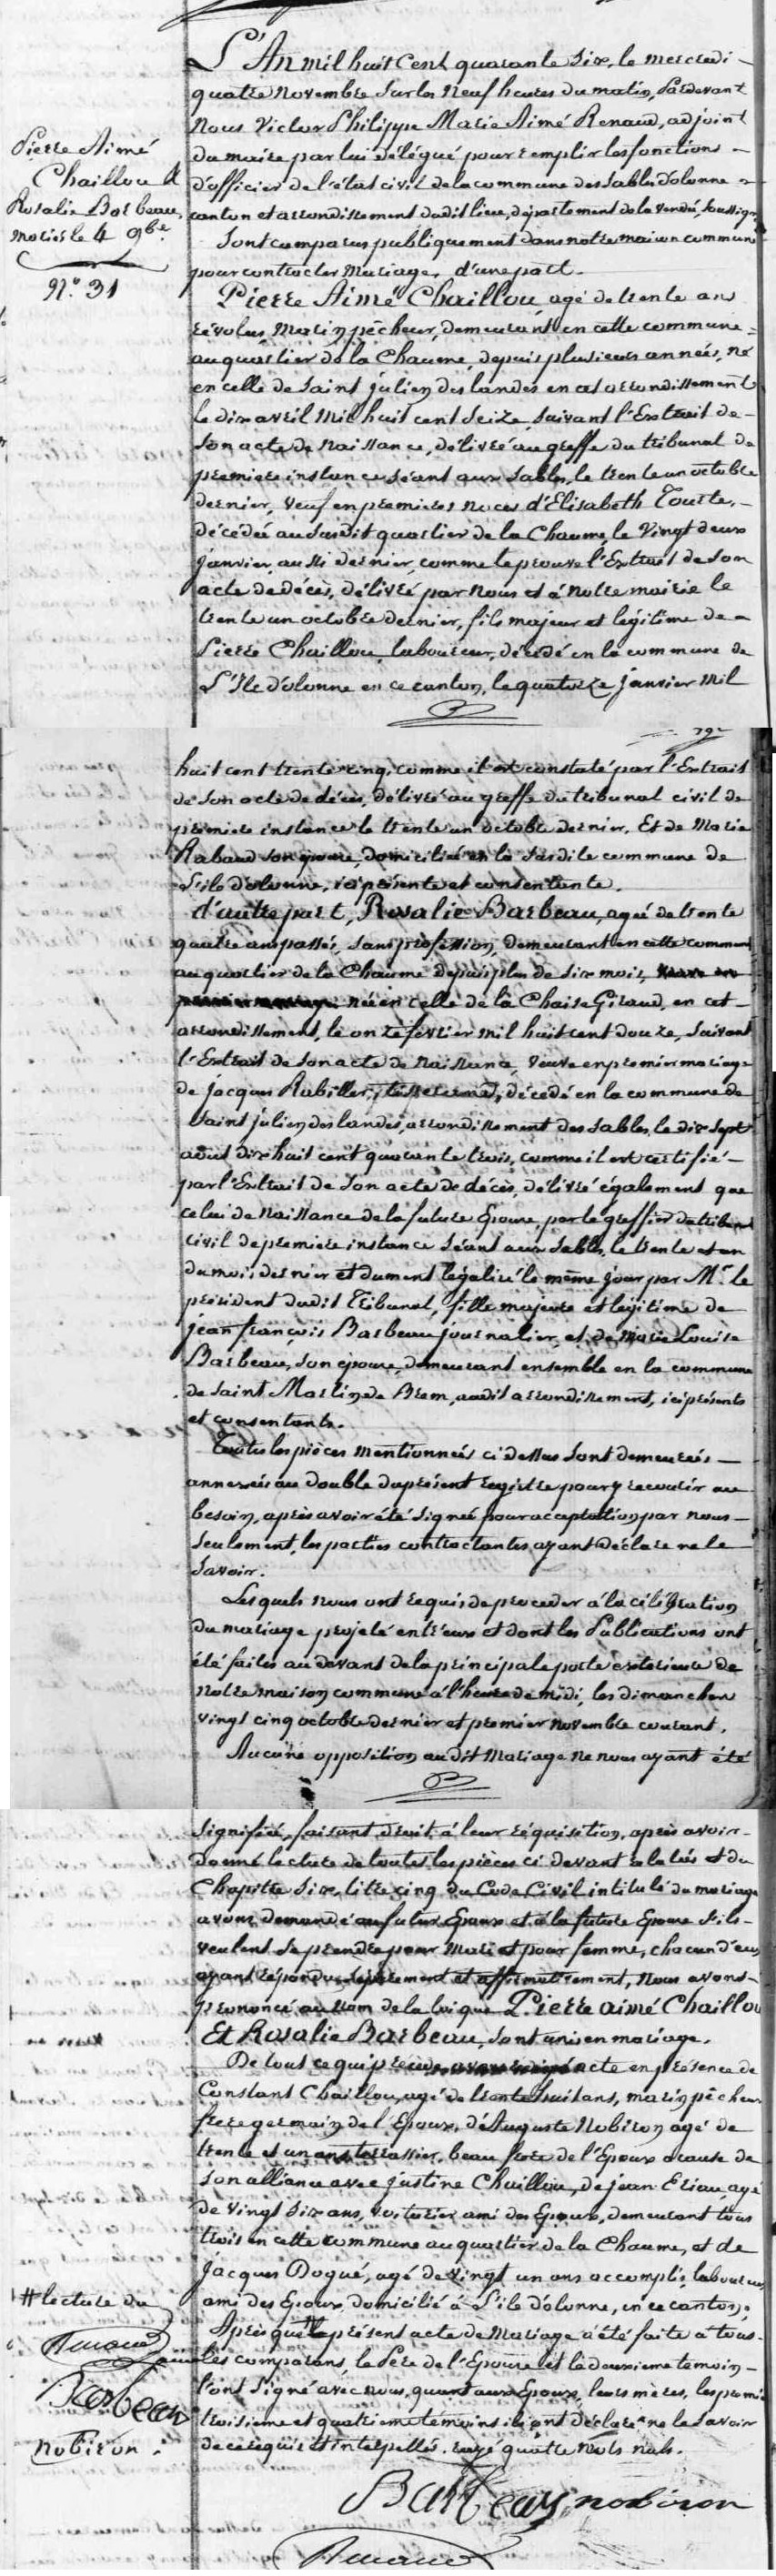 Pierre Aimé
Chaillou &
Rosalie Barbeau
mariés le 4 9bre
N.° 31
L'An mil huit Cent quarante Six, le mercredi
quatre novembre Sur les Neuf heures du matin, Pardevant
Nous Victor Philippe Marie Aimé Renaud, adjoint
du maire par lui délégué pour remplir les fonctions
d'officier de l'état civil de la commune des Sables d'olonne
canton et arrondissement dudit lieu, département de la Vendée, Soussigné
Sont comparus publiquement dans notre maison commune
pour contracter Mariage, d'une part.
Pierre Aimé Chaillou, agé de trente ans
révolus, Marin pêcheur, demeurant en cette commune
au quartier de la Chaume, depuis plusieurs années, né
en celle de Saint julien des landes en cet arrondissement
le dix avril Mil huit cent Seize, Suivant l'Extrait de
Son acte de Naissance, délivré au greffe du tribunal de
premiere instance Séant aux Sables, le trente un octobre
dernier, Veuf en premieres noces d'Elisabeth Tourte,
décédée au Susdit quartier de la Chaume, le Vingt deux
janvier, aussi dernier, comme le prouve l'Extrait de Son
acte de décès, délivré par Nous et à Notre mairie le
trente un octobre dernier, fils majeur et légitime de
Pierre Chaillou, laboureur, décédé en la commune de
L'Ile d'olonne en ce canton, le quatorze janvier Mil
huit cent trente cinq, comme il est constaté par l'Extrait
de Son acte de décès, délivré au greffe du tribunal civil de
premiere instance le trente un octobre dernier, Et de Marie
Rabaud Son épouse, domiciliée en la Susdite commune de
L'ile d'olonne, ici présente et consentante.
d'autre part, Rosalie Barbeau, agée de trente
quatre ans passés, Sans profession, demeurant en cette commune
au quartier de la Chaume depuis plus de Six mois,
née en celle de la Chaise Giraud, en cet
arrondissement, le onze février mil huit cent douze, Suivant
l'Extrait de Son acte de Naissance, Veuve en premier mariage
de Jacques Rabiller, décédé en la commune de
Saint julien des landes, arrondissement des Sables, le dix Sept
août dix huit cent quarante trois, comme il est certifié
par l'Extrait de Son acte de décès, délivré également que
celui de Naissance de la future Epouse, par le greffier du tribunal
civil de premiere instance Séant aux Sables, le trente et un
du mois dernier et dument légalisé le même jour par Mr. le
président dudit Tribunal, fille majeure et légitime de
jean françois Barbeau journalier, et de Marie Louise
Barbeau, Son épouse, demeurant ensemble en la commune
de Saint Martin de Brem, audit arrondissement, ici présents
et consentants.
Toutes les pièces mentionnées ci dessus Sont demeurées
annexées au double du présent registre pour y recourir au
besoin, après avoir été Signées pour acceptation par nous
Seulement, les parties contractantes ayant déclaré ne le
Savoir.
Lesquels nous ont requis de proceder à la célébration
du mariage projeté entr'eux et dont les Publications ont
été faites au devant de la principale porte exterieure de
Notre maison commune à l'heure de midi, les dimanches
vingt cinq octobre dernier et premier novembre courant.
Aucune opposition audit Mariage ne nous ayant été
Signifiée, faisant droit à leur réquisition, après avoir
donné lecture de toutes les pièces ci devant relatés et du
Chapitre Six, titre cinq du Code Civil intitulé du mariage
avons demandé au futur Epoux et à la future Epouse S'ils
veulent Se prendre pour Mari et pour femme, chacun d'eux
ayant répondu Séparément et affirmativement, Nous avons
prononcé au nom de la loi que Pierre aimé Chaillou
Et Rosalie Barbeau, Sont unis en mariage.
De tout ce qui précède acte en présence de
Constant Chaillou, agé de trente huit ans, marin pêcheur
frere germain de l'Epoux, d'Auguste Nobiron agé de
trente et un ans terrassier, beau frere de l'Epoux a cause de
Son alliance avec justine Chaillou, de jean Eriau, agé
de Vingt Six ans, voiturier ami des Epoux, demeurant tous
trois en cette commune au quartier de la Chaume, et de
Jacques Dogué, agé de Vingt un ans accomplis, laboureur
ami des Epoux, domicilié à L'ile d'olonne, en ce canton.
Après que # le présent acte de Mariage a été faite à tous
les comparans, le Pere de l'Epouse et le deuxieme temoin
l'ont Signé avec nous, quant aux Epoux, leurs mères, les premier
troisieme et quatrieme temoins ils ont déclaré ne le Savoir
de ce requis et interpellés. rayé quatre mots nuls.
# lecture du
Renaud
Barbeau
nobiron
Barbeau nobiron
Renaud